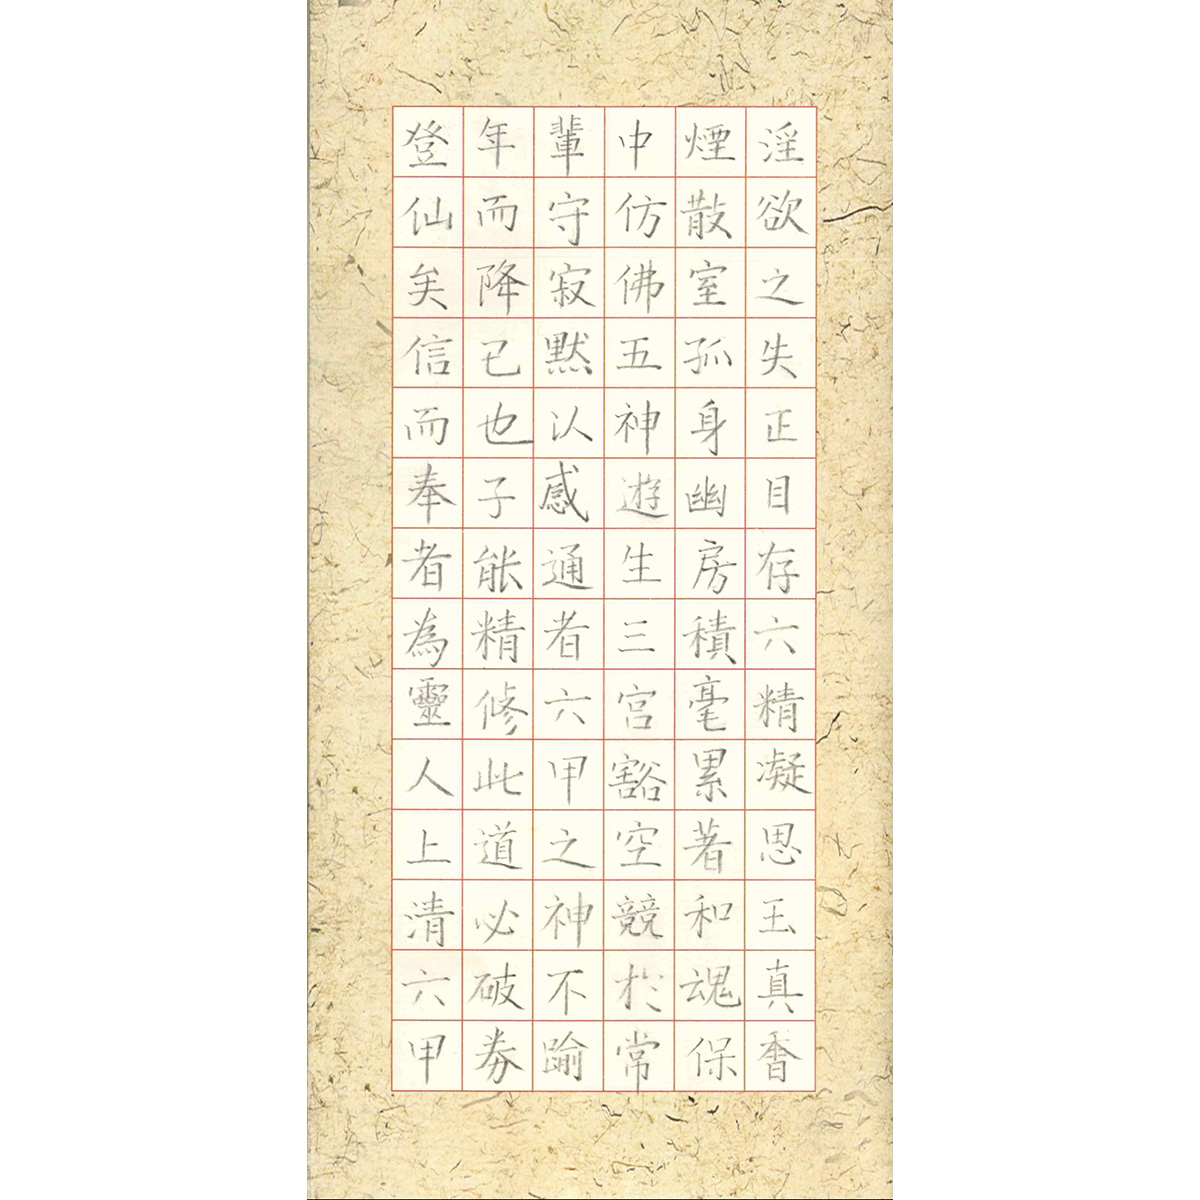 淫欲之失正目存六精凝思玉真香
煙散室孤身幽房積毫累著和魂保
中仿佛五神遊生三宮豁空競於常
輩守寂默以感通者六甲之神不踰
年而降已也子能精修此道必破券
登仙矣信而奉者為靈人上清六甲